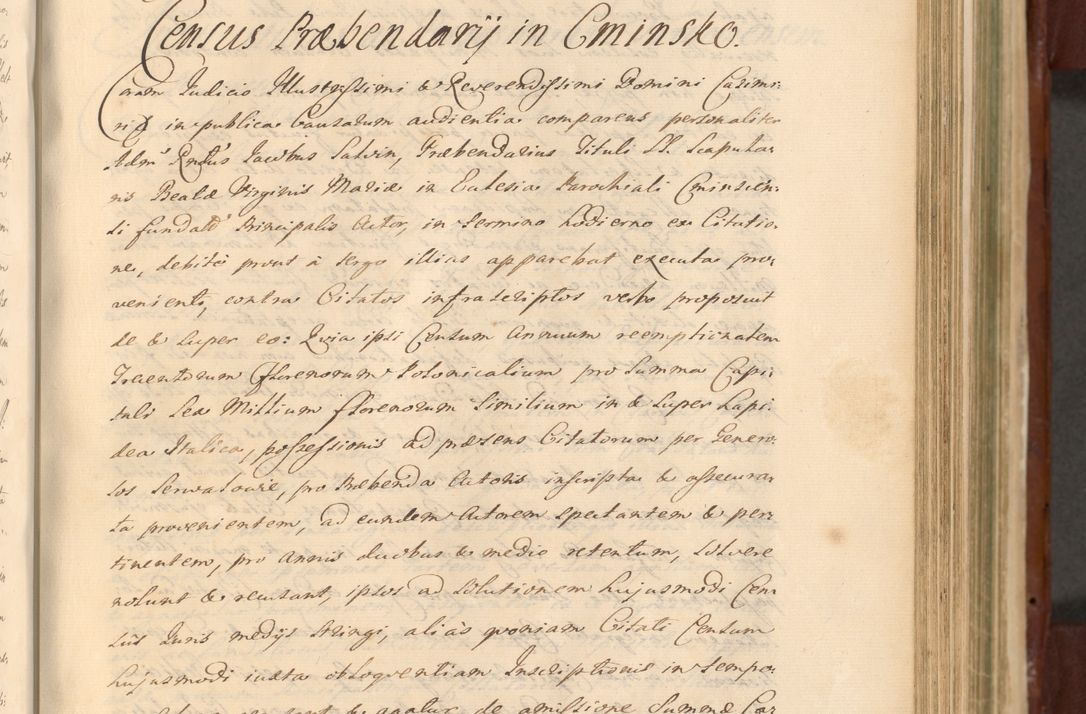 Census Præbendarij in Cminsko.
Coram Iudicio Illustrissimi & Reverendissimi Domini Casimi-
rij in publica Causarum audientia comparens personaliter
Adm Rndus Iacobus Salvin, Præbendarius Tituli SS. Scapula-
ris Beatæ Virginis Mariæ in Eclesia Parochiali Cminscien-
si fundat Principalis Actor, in termino hodierno ex Citatio-
ne, debite prout à tergo illius apparebat executa pro-
veniente, contra Citatos infrascriptos verbo proposuit
de & super eo: Quia ipsi Censum annuum reemptionalem
Trecentorum Florenorum Polonicalium pro Summa Capi-
tali Sex Millium florenorum similium in & super Lapi-
dea Italica, possessionis ad præsens Citatorum per Genero-
sos Serwatowic, pro Præbenda Actoris inscripta & assecura-
ta provenientem, ad eundem Actorem spectantem & per-
tinentem, pro annis duobus & medio retentum, solvere
nolunt & recusant, ipsos ad solutionem hujusmodi Cen-
sus Iuris medijs stringi, aliàs quoniam Citati Censum
hujusmodi iuxta obloquentiam Inscriptionis in tempo-
de amissione Summæ Ca-